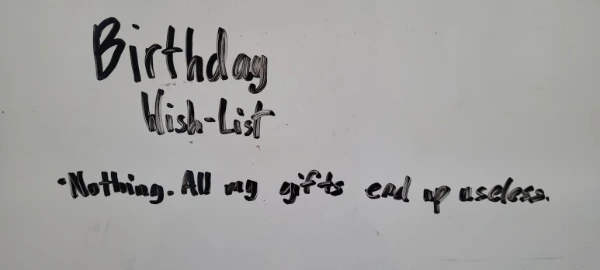 Birthday
Wish-List
•Nothing. All my gifts end up useless.